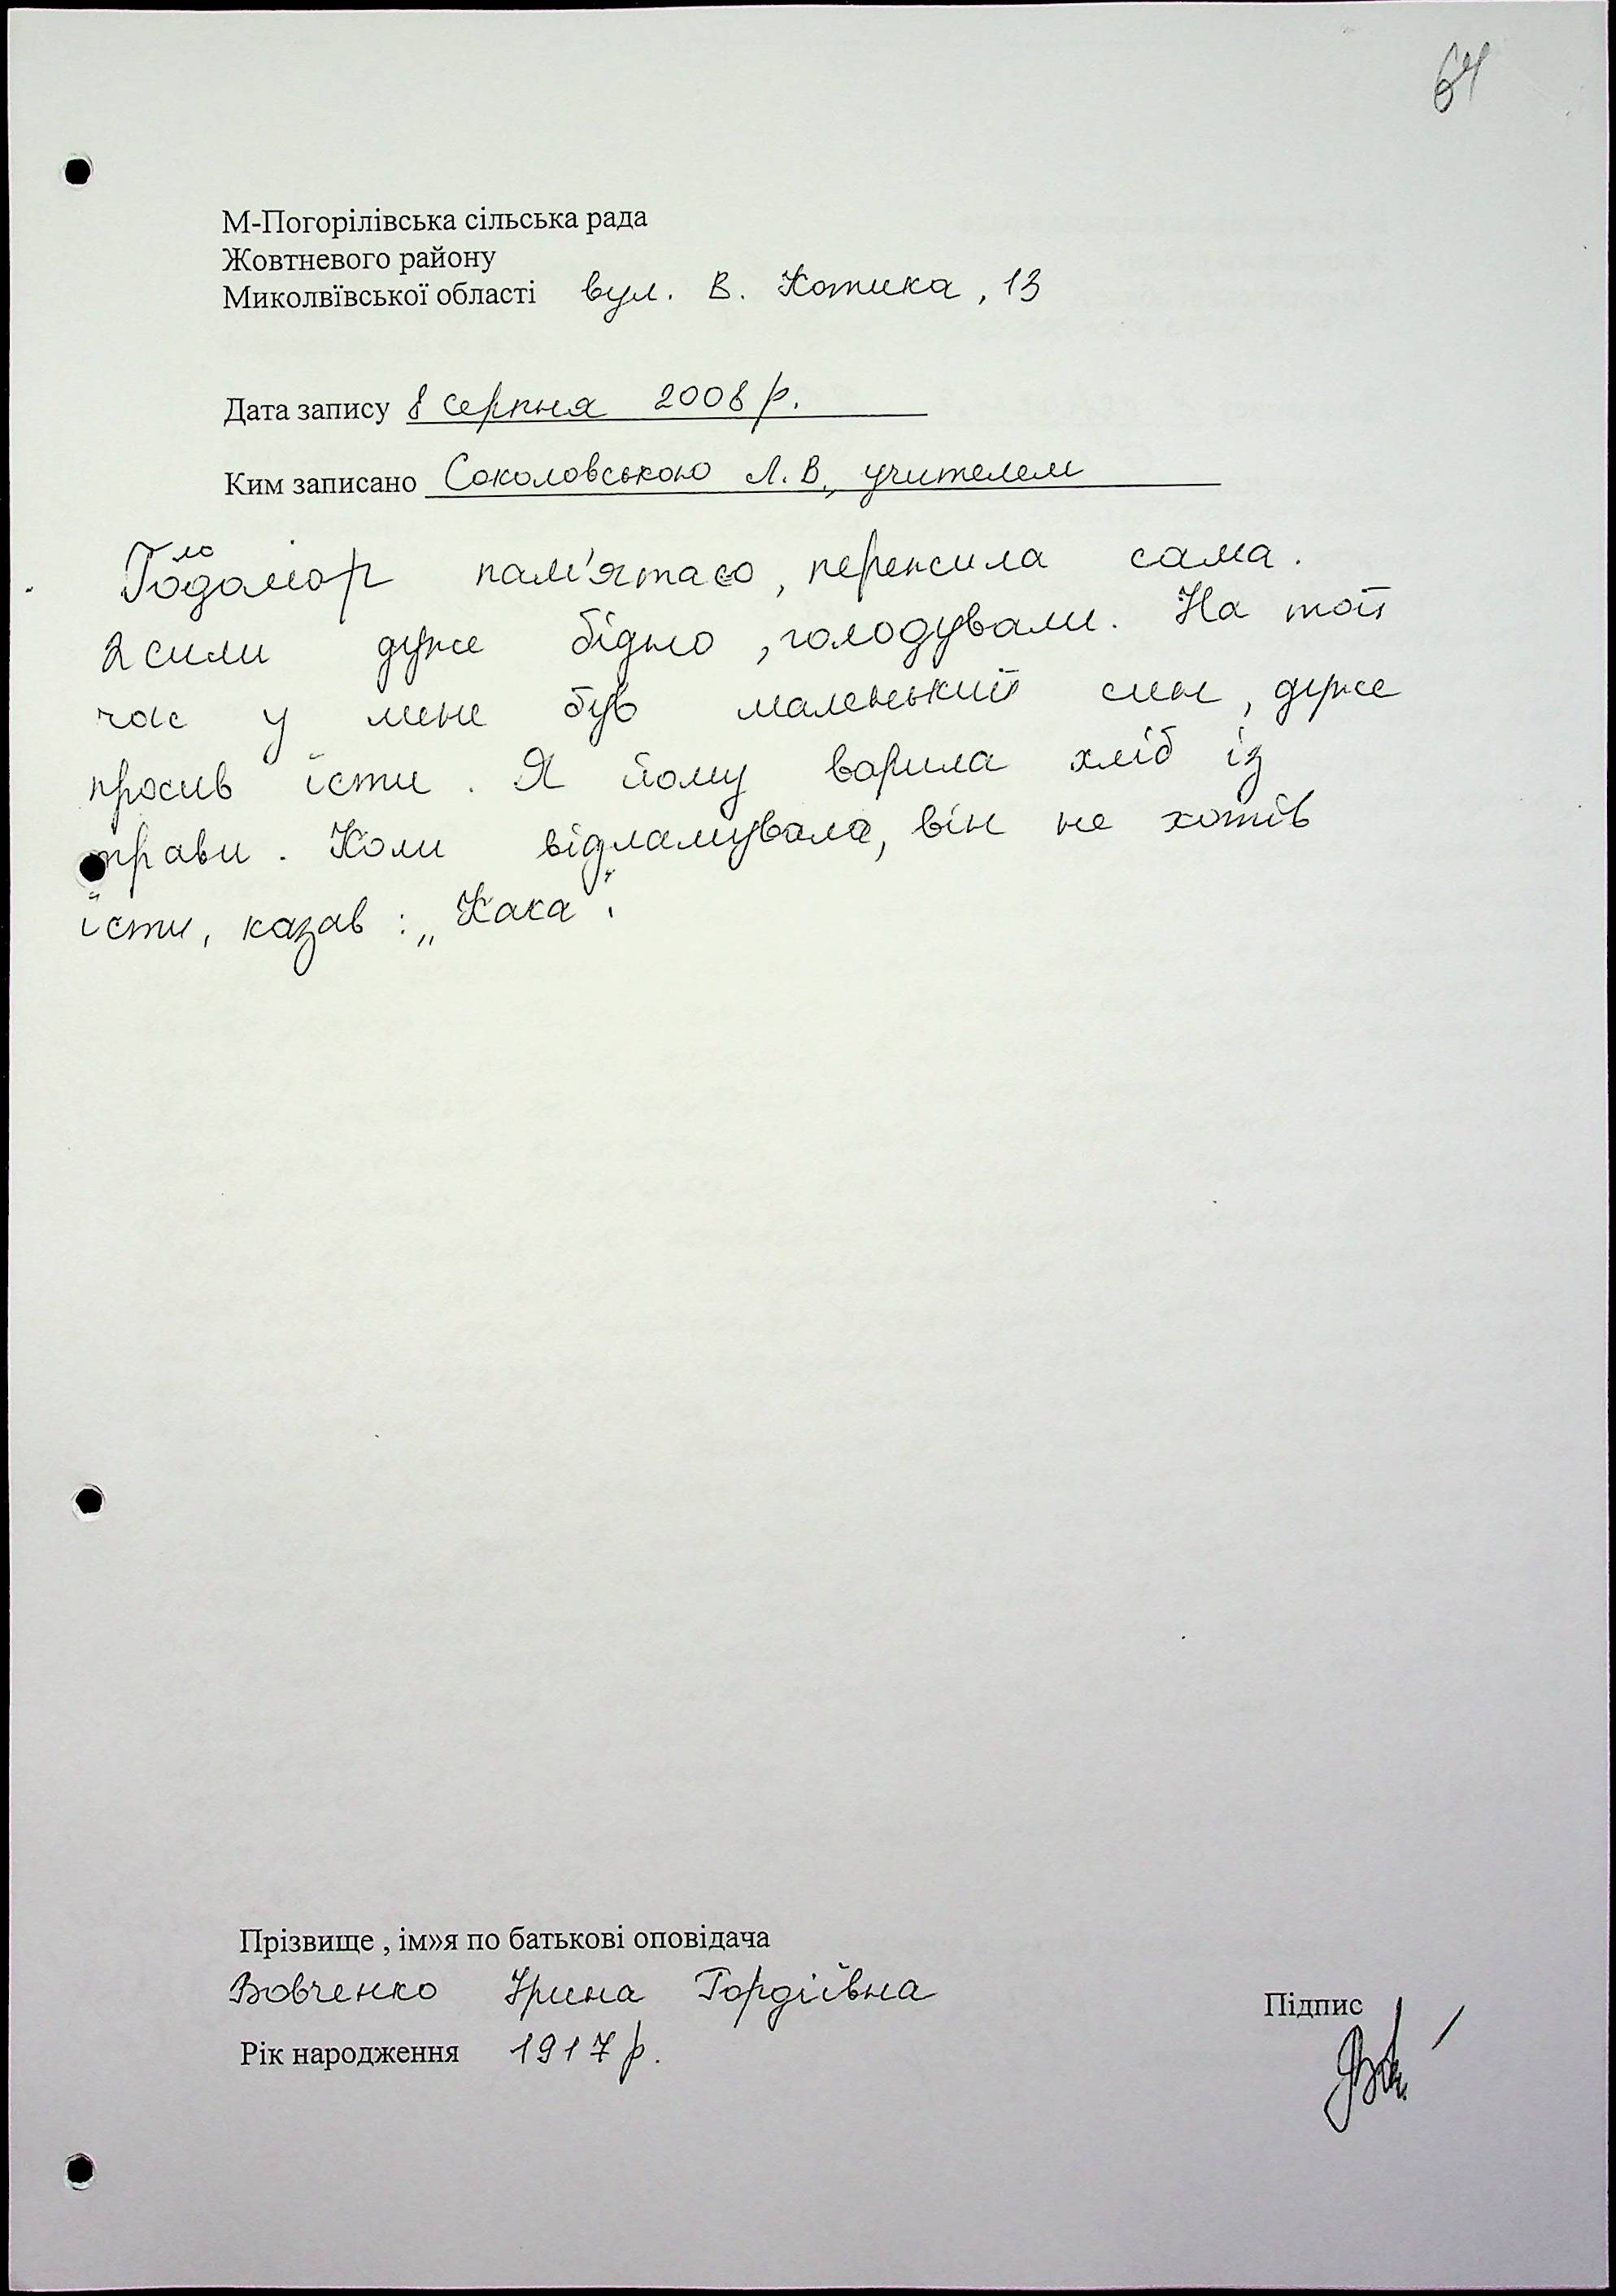 64
М-Погорілівська сільська рада
Жовтневого району
Миколвївської області вул. В. Котика, 13
Дата запису 8 серпня 2008 р.
Ким записано Соколовською Л.В., учителем
Голодомор пам'ятаю, пережила сама.
Жили дуже бідно, голодували. На той
час у мене був маленький син, дуже
просив їсти. Я йому варила хліб із
трави. Коли відламувала, він не хотів
їсти, казав: „Кака".
Прізвище , ім»я по батькові оповідача
Вовченко Ірина Гордіївна
Підпис
Рік народження 1917 р.